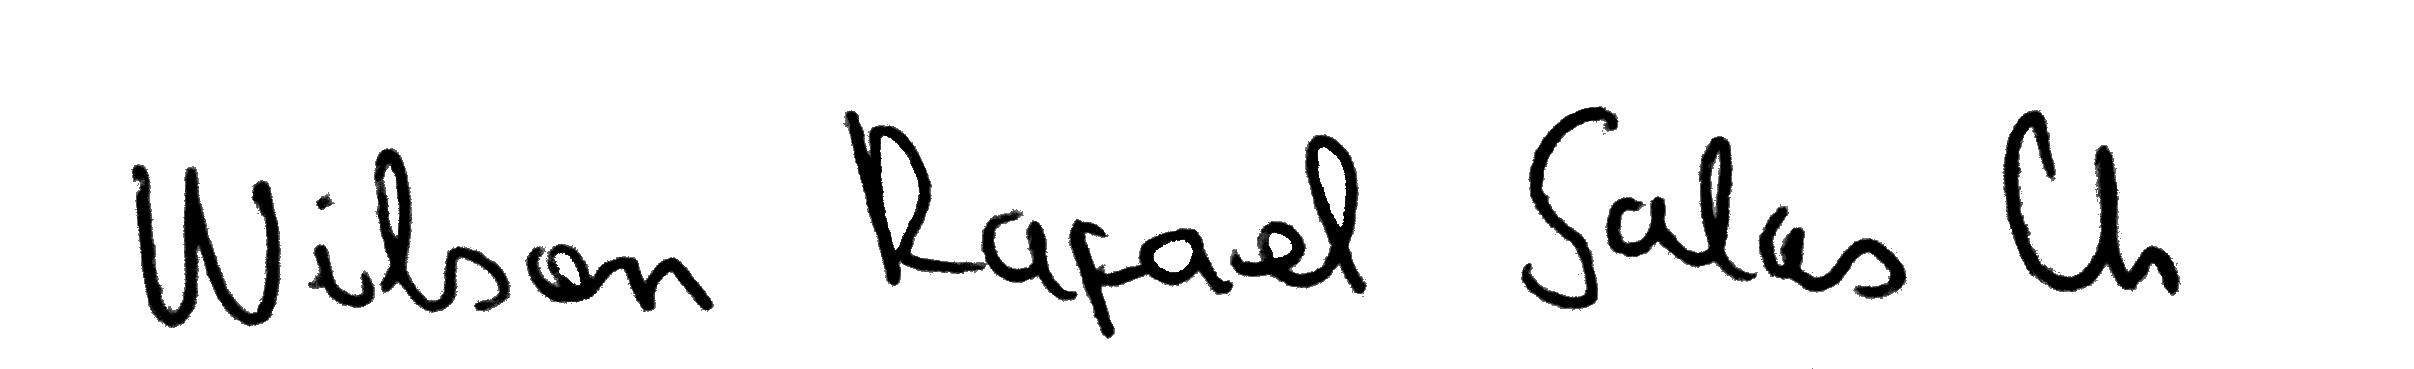 Wilson Rafael Salas Ch